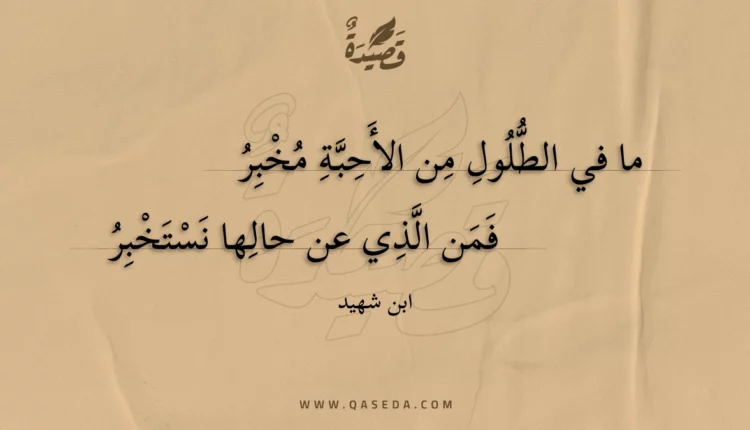 قَصِيدَةٌ
ما في الطُّلُولِ مِن الأَحِبَّةِ مُخْبِرُ
فَمَن الَّذِي عن حالِها نَسْتَخْبِرُ
ابن شهيد
WWW.QASEDA.COM